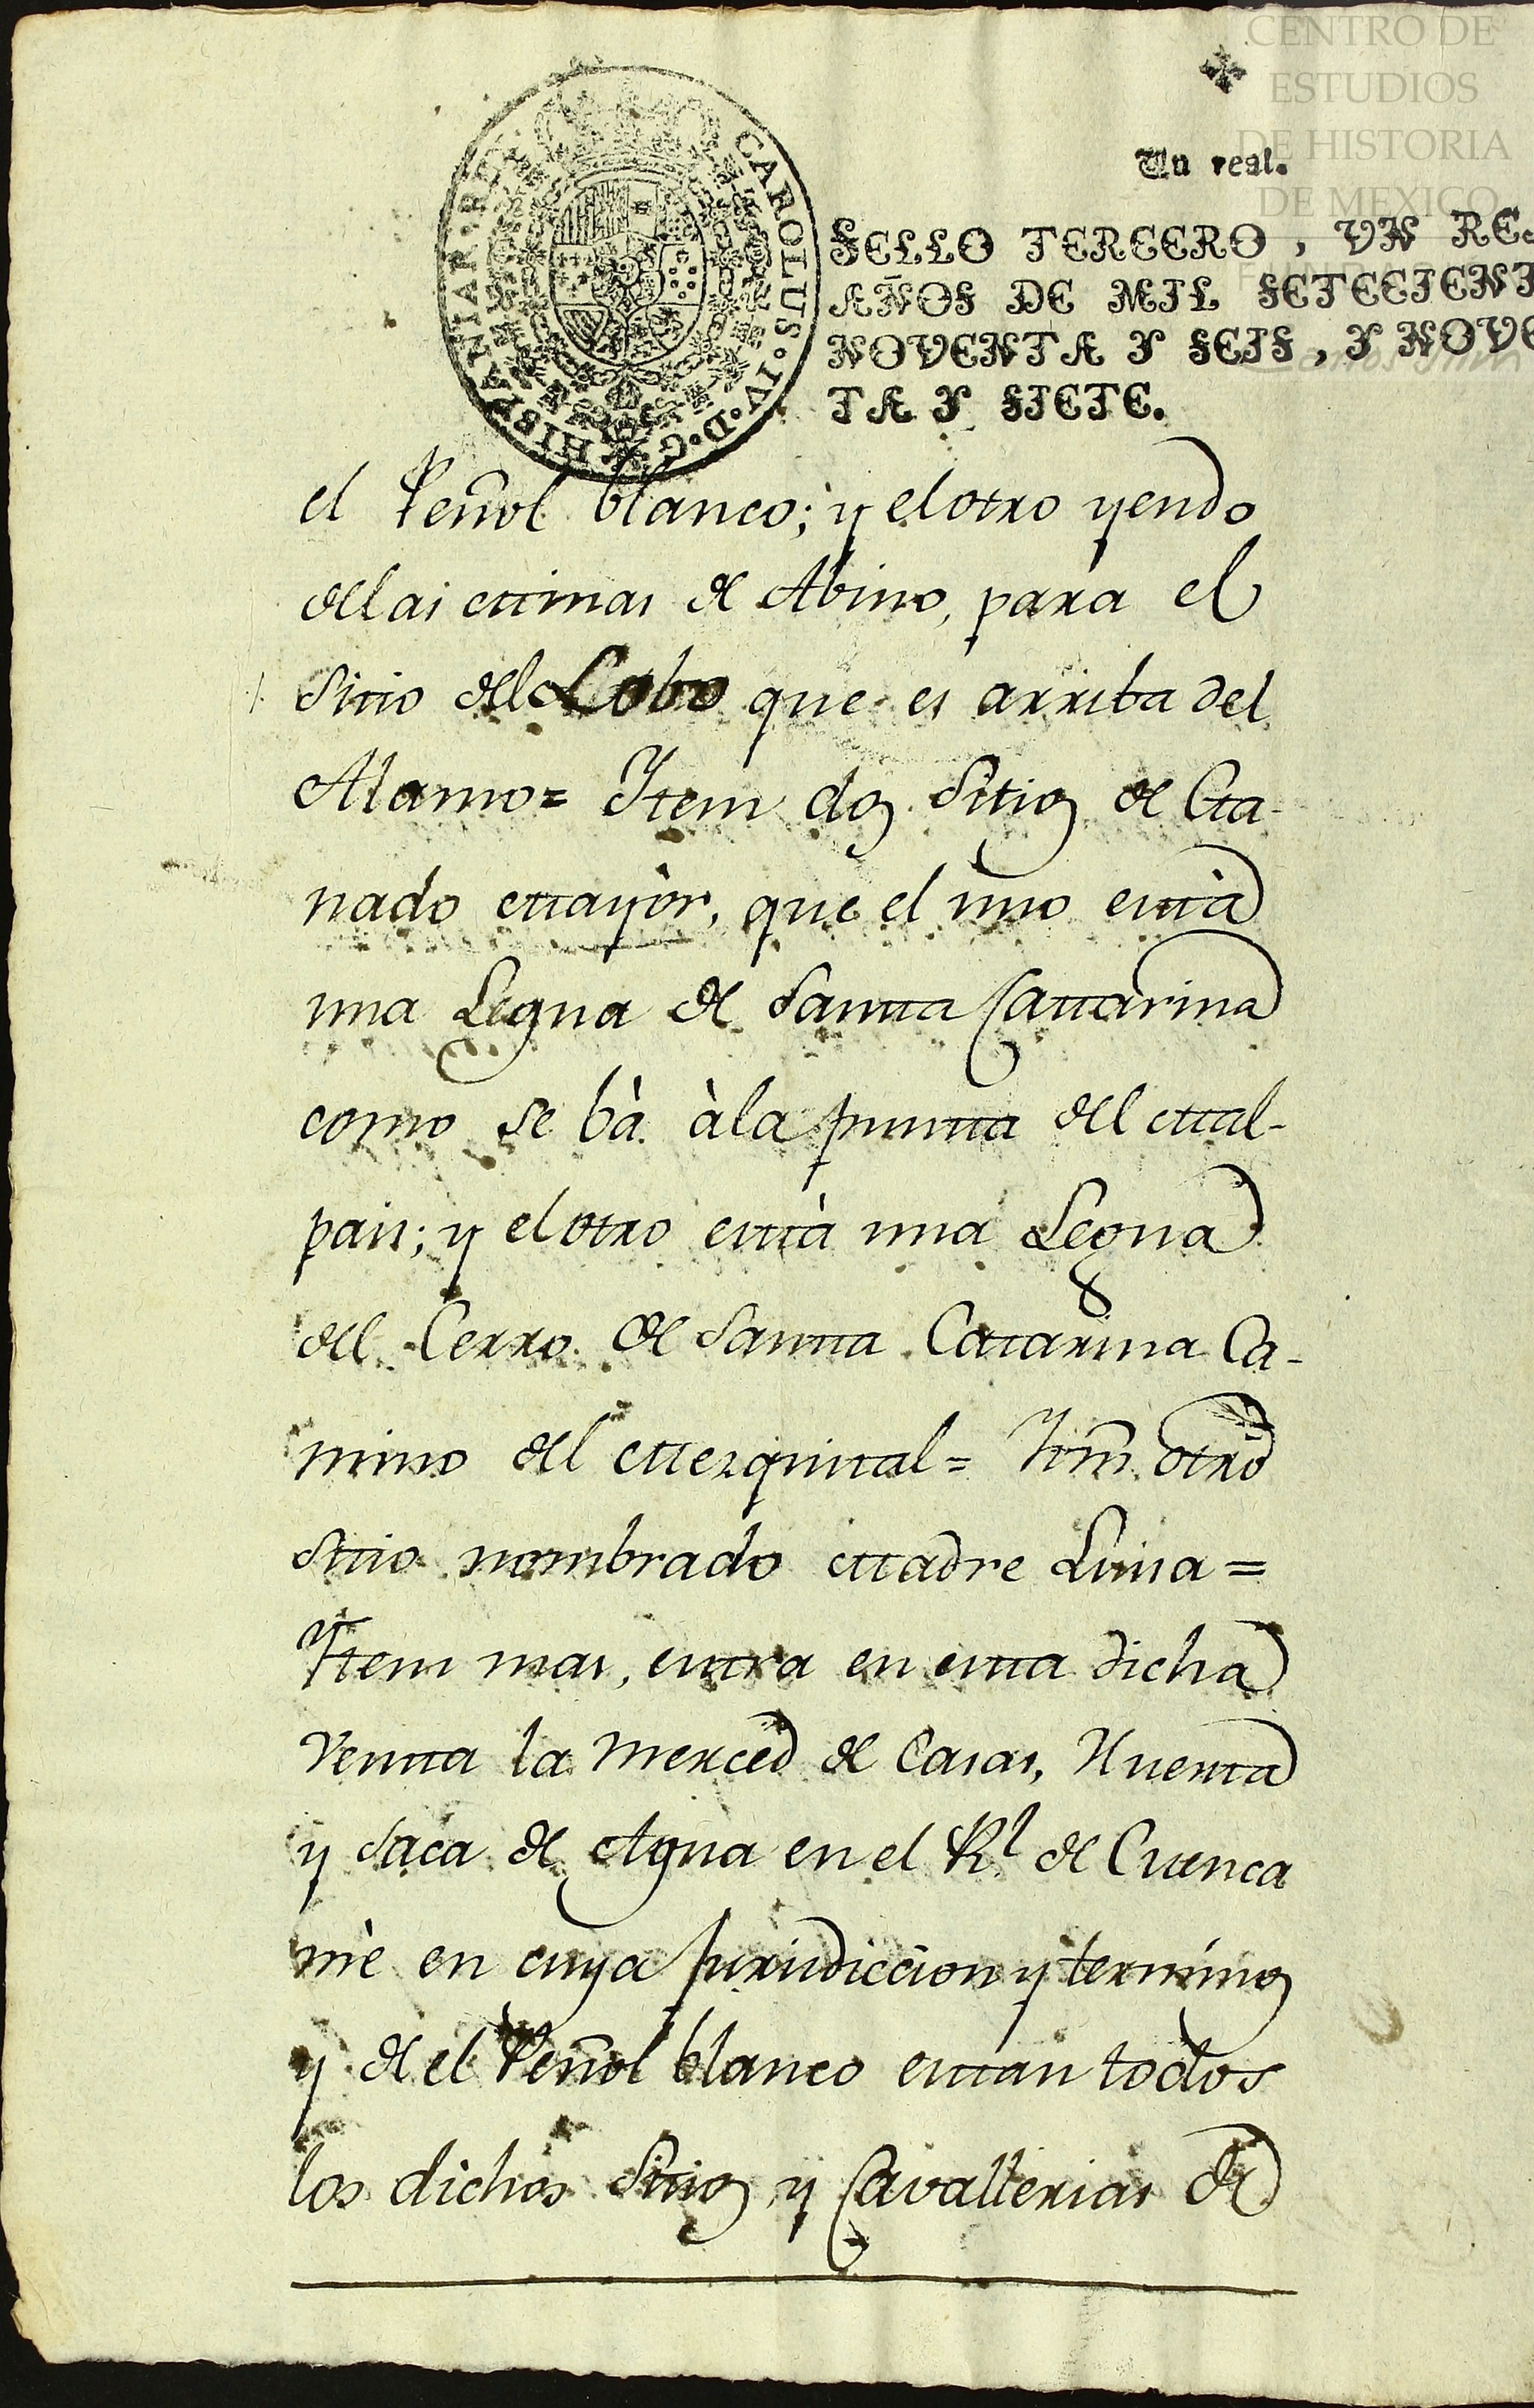 CENTRO DE
ESTUDIOS
DE HISTORIA
DE MEXICO
Un real.
CAROLUS·IV·D·G·HISPANIAR·REX
SELLO TERCERO, VN RE
AÑOS DE MIL SETECIENT
NOVENTA Y SEIS, Y NOVE
TA Y SIETE.
el Peñol blanco; y el otro yendo
de las Minas de Abino, para el
Sitio del Lobo que es arriba del
Alamo= Ytem dos Sitios de Ga-
nado mayòr, que el uno està
una Legua de Santa Cattarina
como se bà à la punta del Mal-
pais; y el otro està una Legua
del Cerro de Santa Catarina Ca-
mino del Mezquital= Ytm̃ otro
Sitio nombrado Madre Luisa=
Ytem mas, entra en esta dicha
Venta la merced de Casas, Huerta
y Saca de Agua en el Rl de Cuenca
mè en cuya jurisdiccion y terminos
y de el Peñol blanco estan todos
los dichos Sitios y Cavallerias de